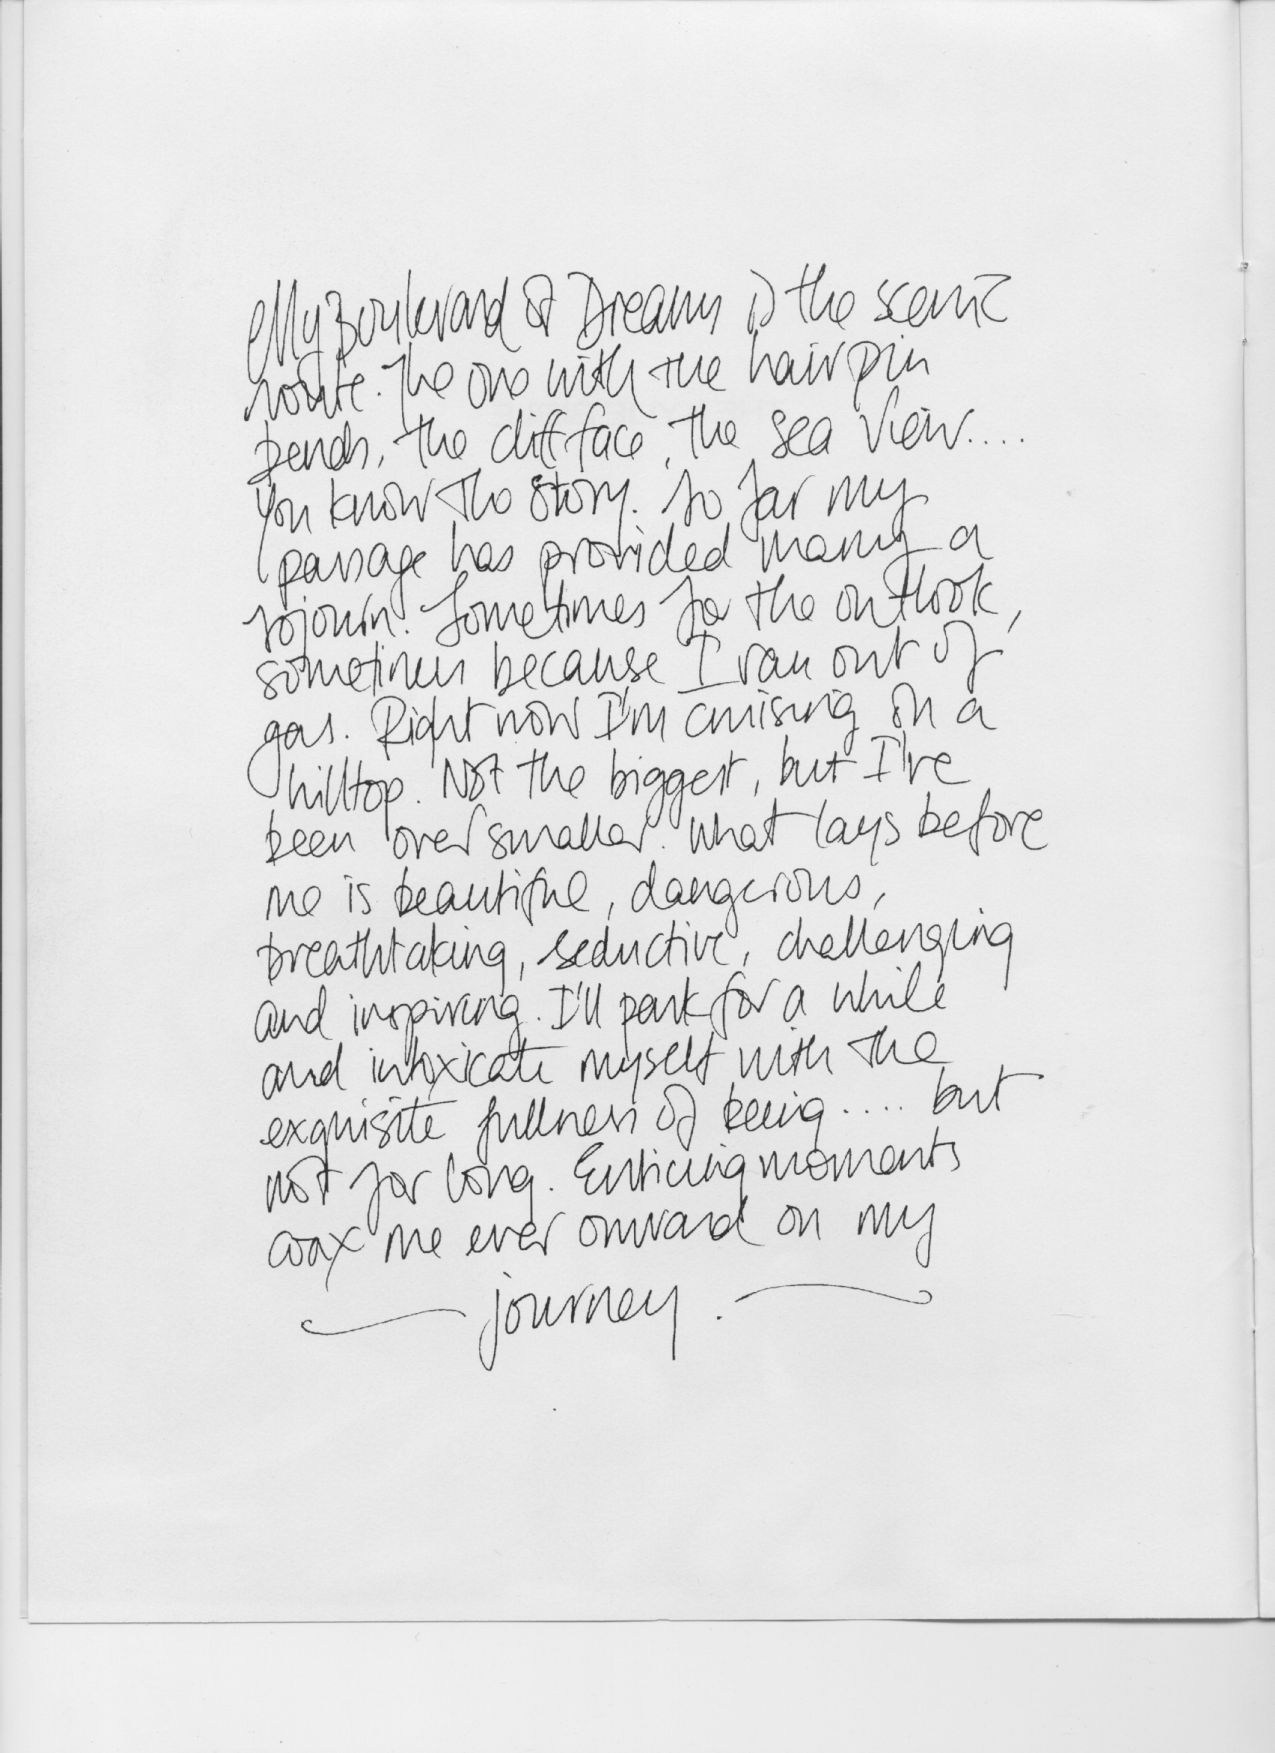 My Boulevard of Dreams is the scenic
route. The one with the hairpin
bends, the cliff face, the sea view....
You know the story. So far my
passage has provided many a
sojourn. Sometimes for the outlook,
sometimes because I ran out of
gas. Right now I'm cruising on a
hilltop. Not the biggest, but I've
been over smaller. What lays before
me is beautiful, dangerous,
breathtaking, seductive, challenging
and inspiring. I'll park for a while
and intoxicate myself with the
exquisite fullness of being.... but
not for long. Enticing moments
coax me ever onward on my
journey.